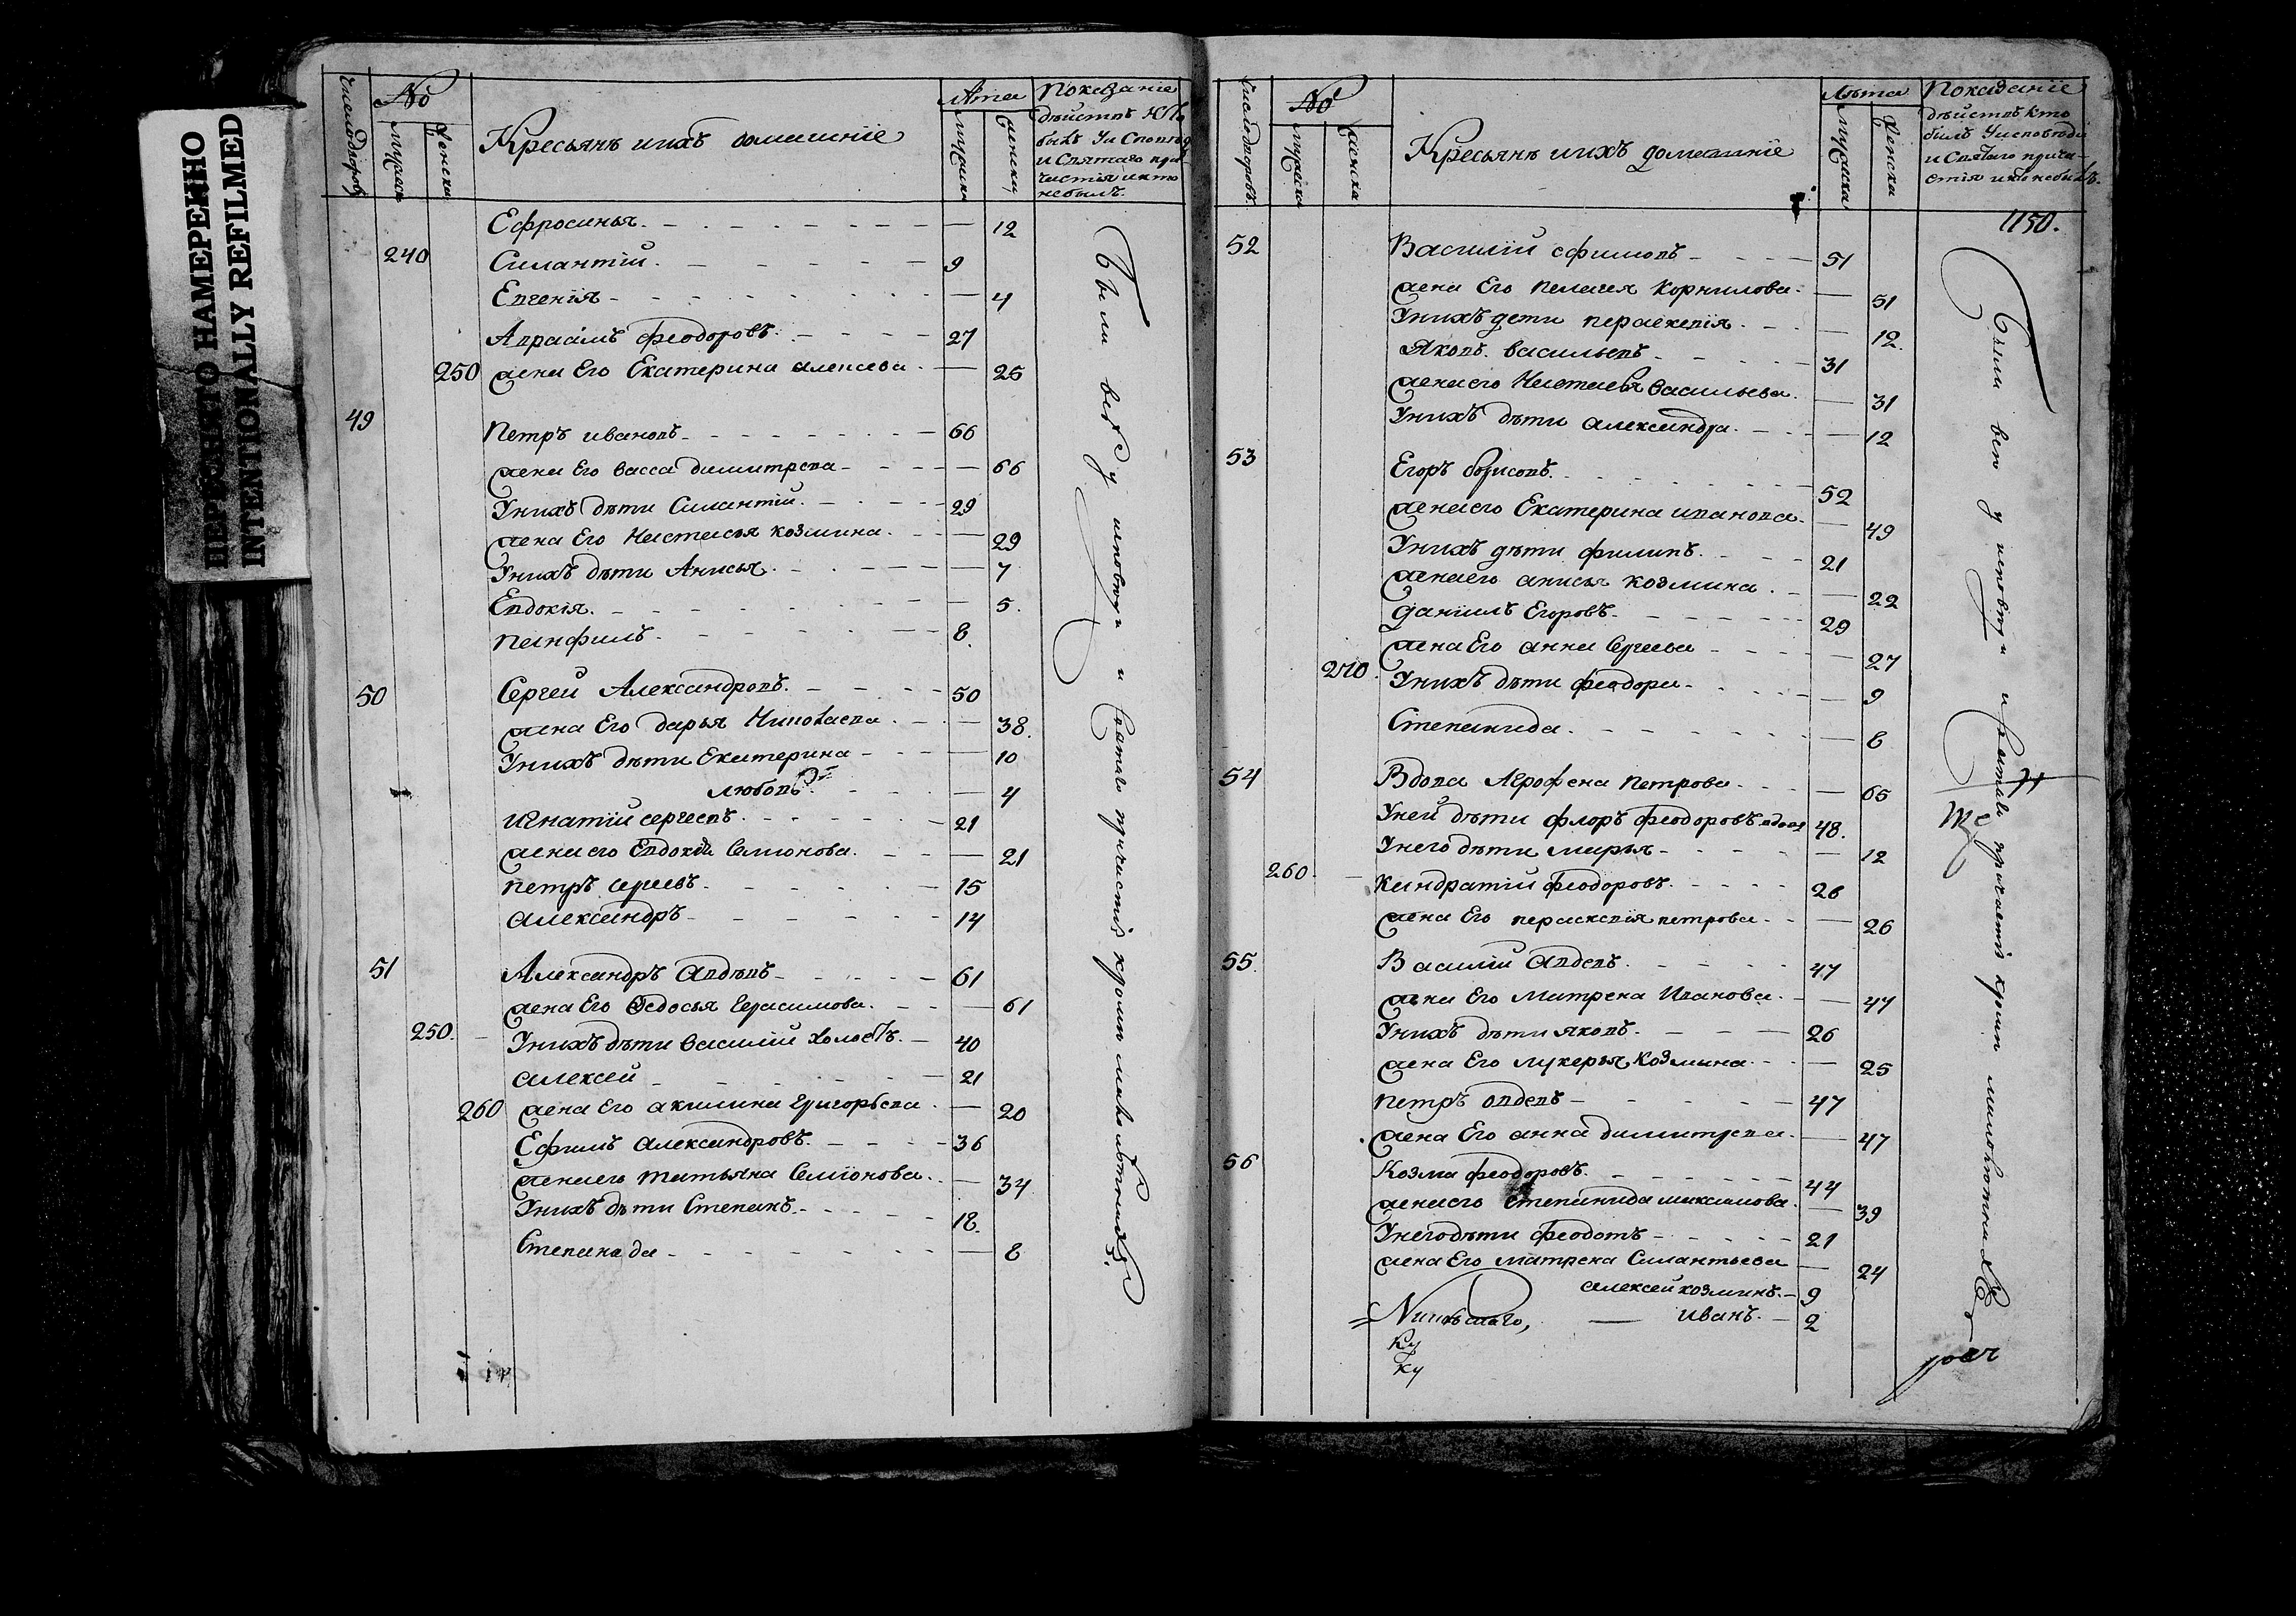 ПЕРЕСНЯТО НАМЕРЕННО
INTENTIONALLY REFILMED
Число дворовъ
№
мужеска
женска
Кресьянъ ихъ домашніе
Лѣта
мужски
женски
Показаніе
дѣйствъ Кто
былъ
и Святаго при-
частія и кто
небылъ.
Ефросинья. 12
240 Силантій. 9
Евгенія 4
Авраамъ Феодоровъ. 27
250 жена Его Екатерина алексева. 25
49 Петръ ивановъ 66
жена Его васса димитрева 66
Унихъ дѣти Силантій. 29
жена Его Настасья козмина. 29
Унихъ дѣти Анисья. 7
Евдокія. 5.
панфилъ. 8.
50 Сергей Александровъ. 50
жена Его дарья Николаева. 38.
Унихъ дѣти Екатерина 10
любовь. 4
игнатій сергеевъ. 21
жена его Евдокія Семионова. 21
петръ сергеевъ. 15
александръ 14
51 Александръ Авдѣевъ 61
жена Его Федосья Герасимова. 61
250. Унихъ дѣти василій холостъ. 40
алексей 21
260 жена Его акилина григорьева. 20
Ефимъ александровъ. 36
жена его татьяна Семіонова. 34
Унихъ дѣти Степанъ. 18.
Степанада 8
Были всѣ у исповѣди и Святаго причастія кромѣ малолѣтнихъ
Число дворовъ.
№
мужеска
женска
Кресьянъ ихъ домашніе
Лѣта
мужска
женска
Показаніе
дѣйствъ кто
билъ Уисповѣди
и Святаго прича-
стія икто небылъ.
1150.
52 Василій ефимовъ 51
жена Его пелагея корнилова. 51
Унихъ дети параскевія. 12.
Яковъ васильевъ 31
жена его Настасья васильева. 31
Унихъ дѣти александра. 12
53 Егоръ борисовъ. 52
жена его Екатерина иванова. 49
Унихъ дѣти филипъ. 21
жена его анисья козмина. 22
данилъ Егоровъ. 29
жена Его анна Сергеева 27
270. Унихъ дѣти феодора. 9
Степанида. 8
54 Вдова Агрофена петрова. 65
Уней дѣти флоръ феодоровъ вдовъ 48.
Унего дѣти марья 12
260 Кандратій феодоровъ. 26
жена Его параскевія петрова. 26
55. Василій Авдевъ. 47
жена Его Матрена Иванова. 47
Унихъ дѣти яковъ. 26
жена Его лукерья козмина. 25
петръ авдевъ 47
жена Его анна димитрева. 47
56 Козма феодоровъ. 44
жена его степанида максимова. 39
Унего дѣти феодотъ 21
жена Его матрена Силантьева 24
алексей козминъ. 9
иванъ. 2
Ку
ку
Были всѣ у исповѣди и Святаго причастія кромѣ малолѣтныхъ